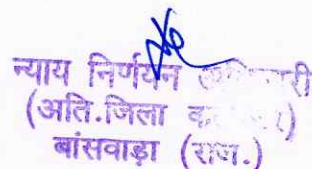 न्याय निर्णयन
(अति.जिला
बांसवाड़ा (राज.)